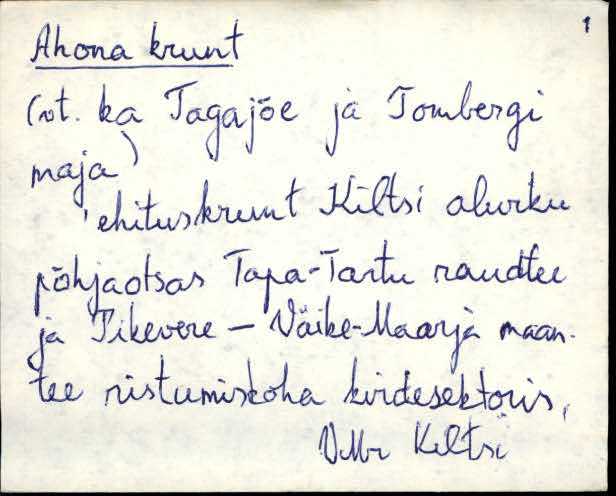 1
Ahona krunt
(vt. ka Tagajõe ja Tombergi
maja)
'ehituskrunt Kiltsi alevku
põhjaotsas Tapa-Tartu raudtee
ja Pikevere - Väike-Maarja maan-
tee ristumiskoha kirdesektoris,
VMr Kiltsi